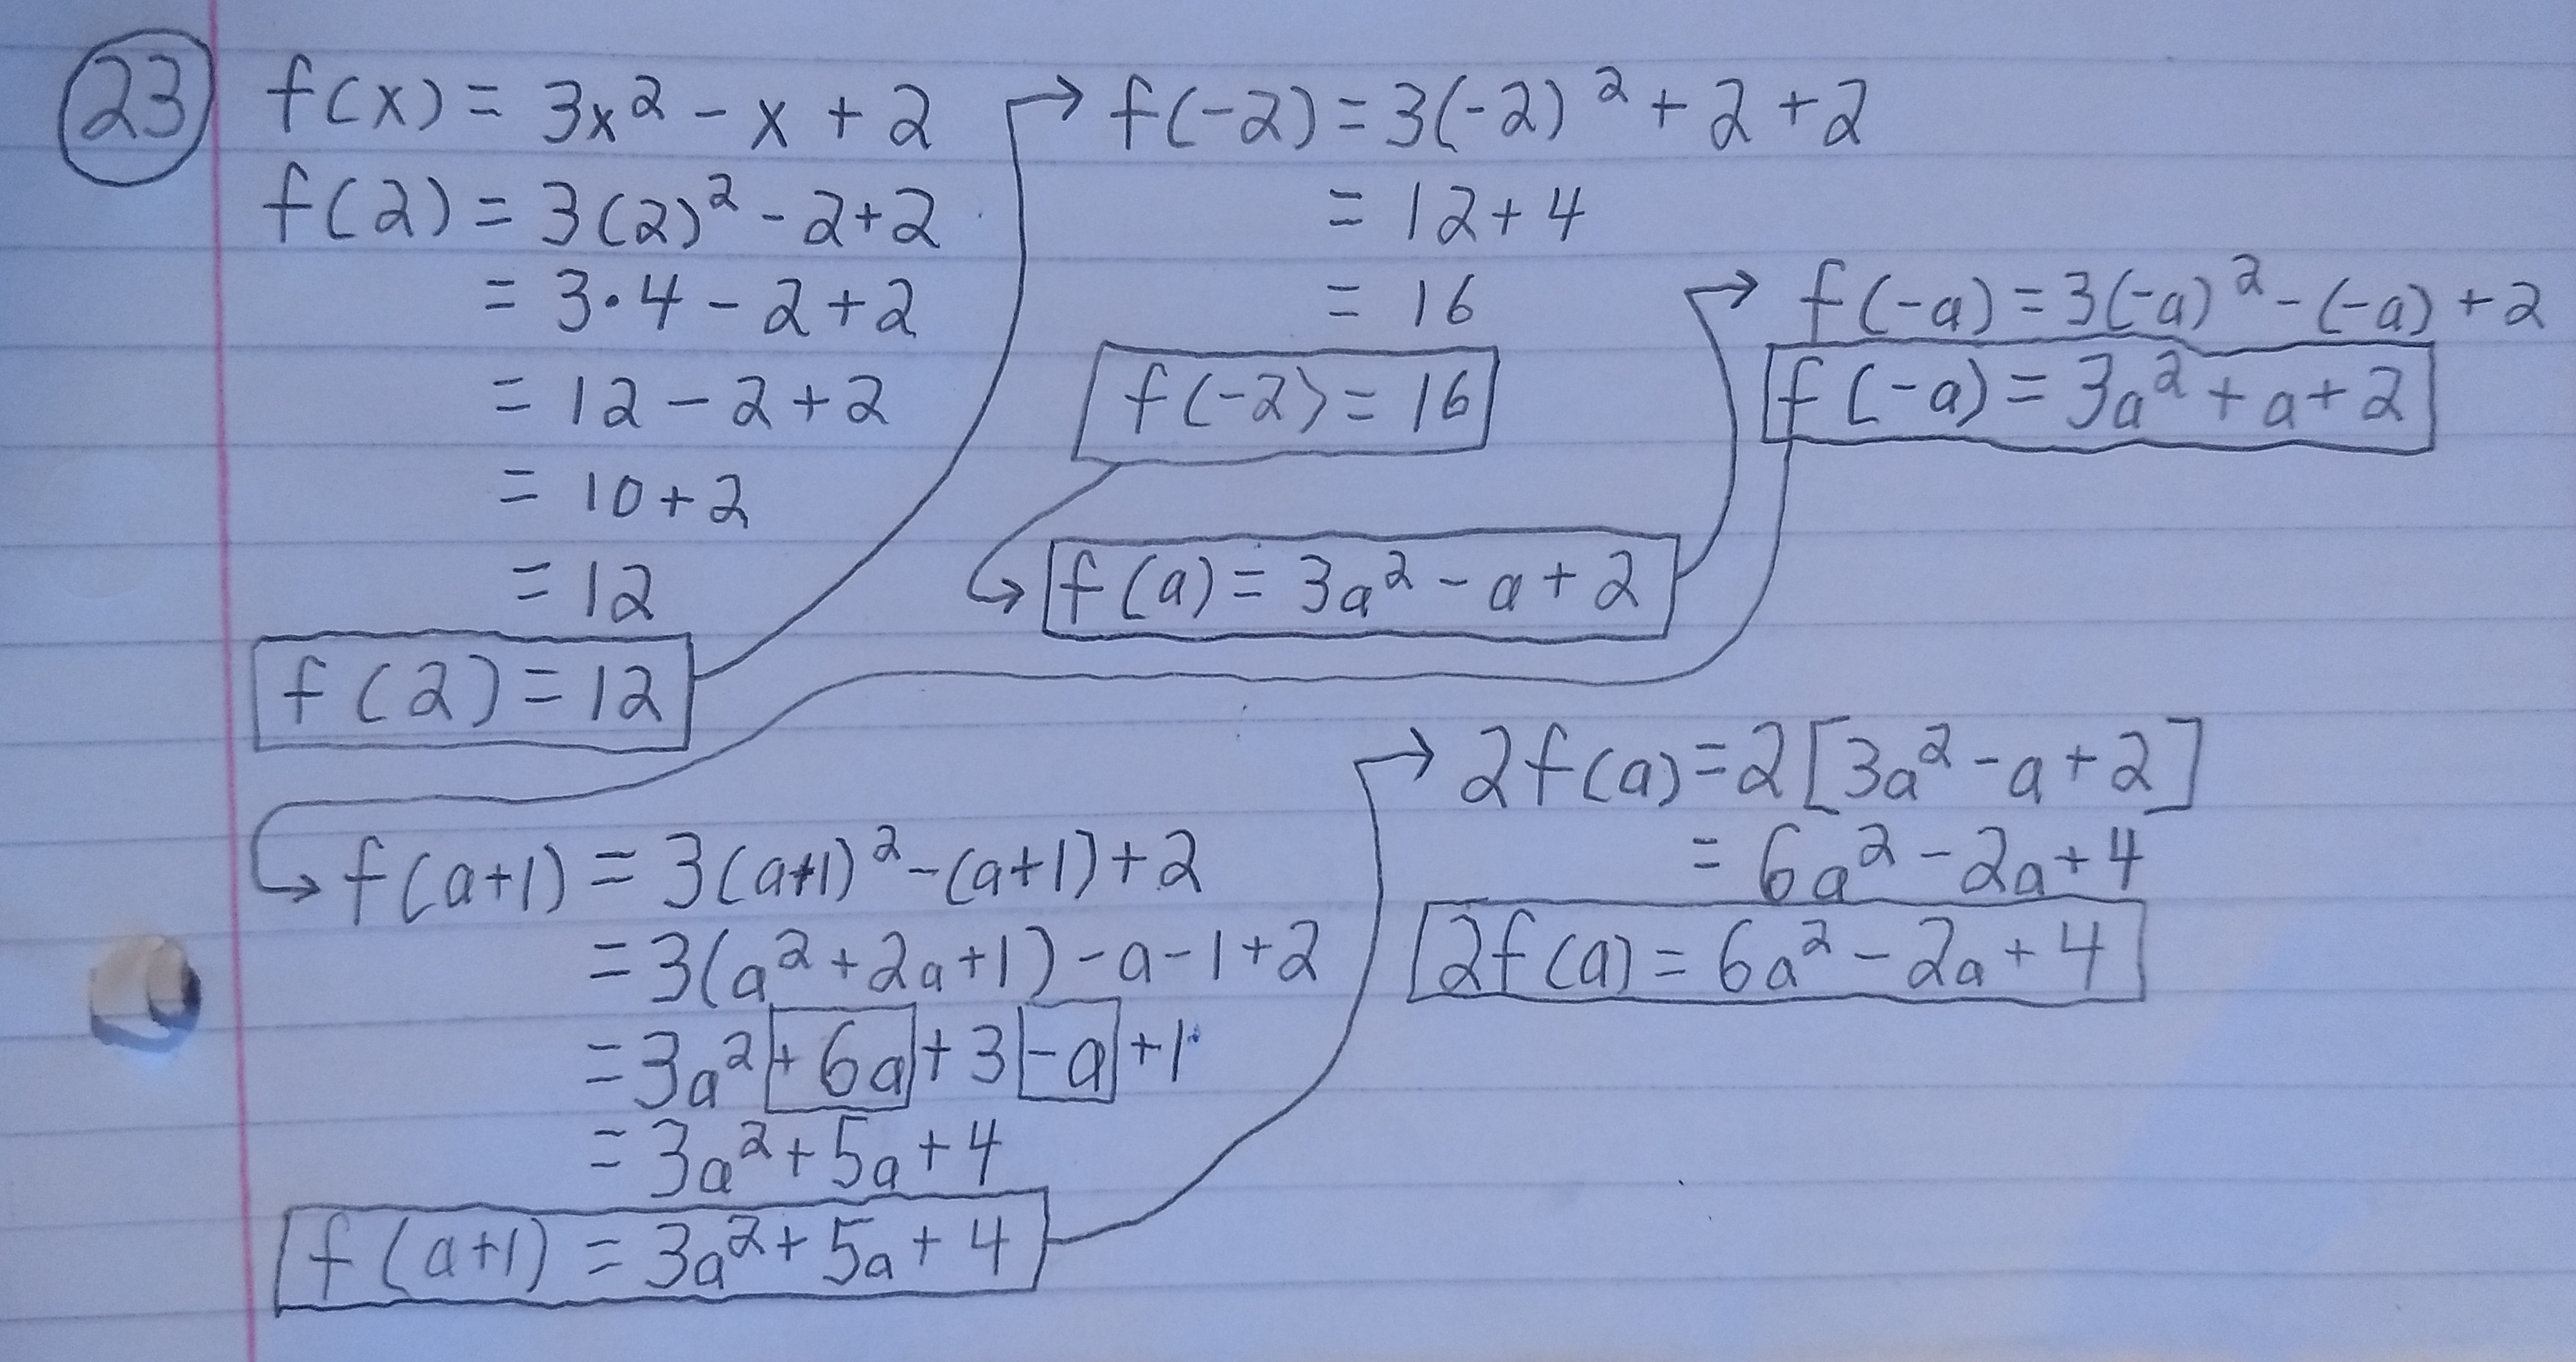 23
f(x) = 3x² - x + 2
f(2) = 3(2)² - 2 + 2
= 3·4 - 2 + 2
= 12 - 2 + 2
= 10 + 2
= 12
f(2) = 12
f(-2) = 3(-2)² + 2 + 2
= 12 + 4
= 16
f(-2) = 16
f(a) = 3a² - a + 2
f(-a) = 3(-a)² - (-a) + 2
f(-a) = 3a² + a + 2
f(a+1) = 3(a+1)² - (a+1) + 2
= 3(a² + 2a + 1) - a - 1 + 2
= 3a² + 6a + 3 - a + 1
= 3a² + 5a + 4
f(a+1) = 3a² + 5a + 4
2f(a) = 2[3a² - a + 2]
= 6a² - 2a + 4
2f(a) = 6a² - 2a + 4